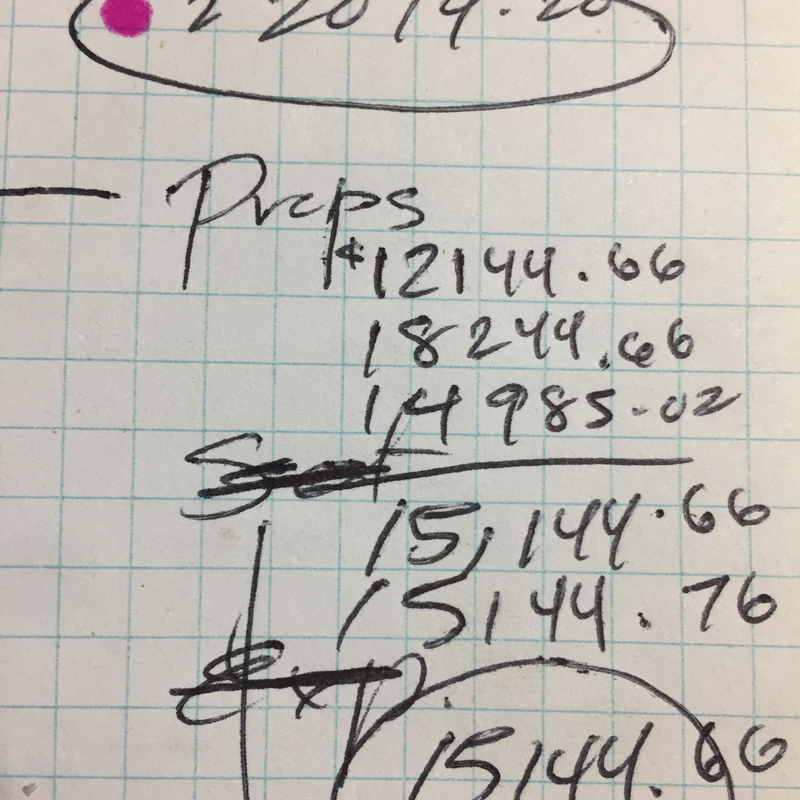 22014.20
Props
$12144.66
18244.66
14985.02
15,144.66
15144.76
Exp.
15144.66